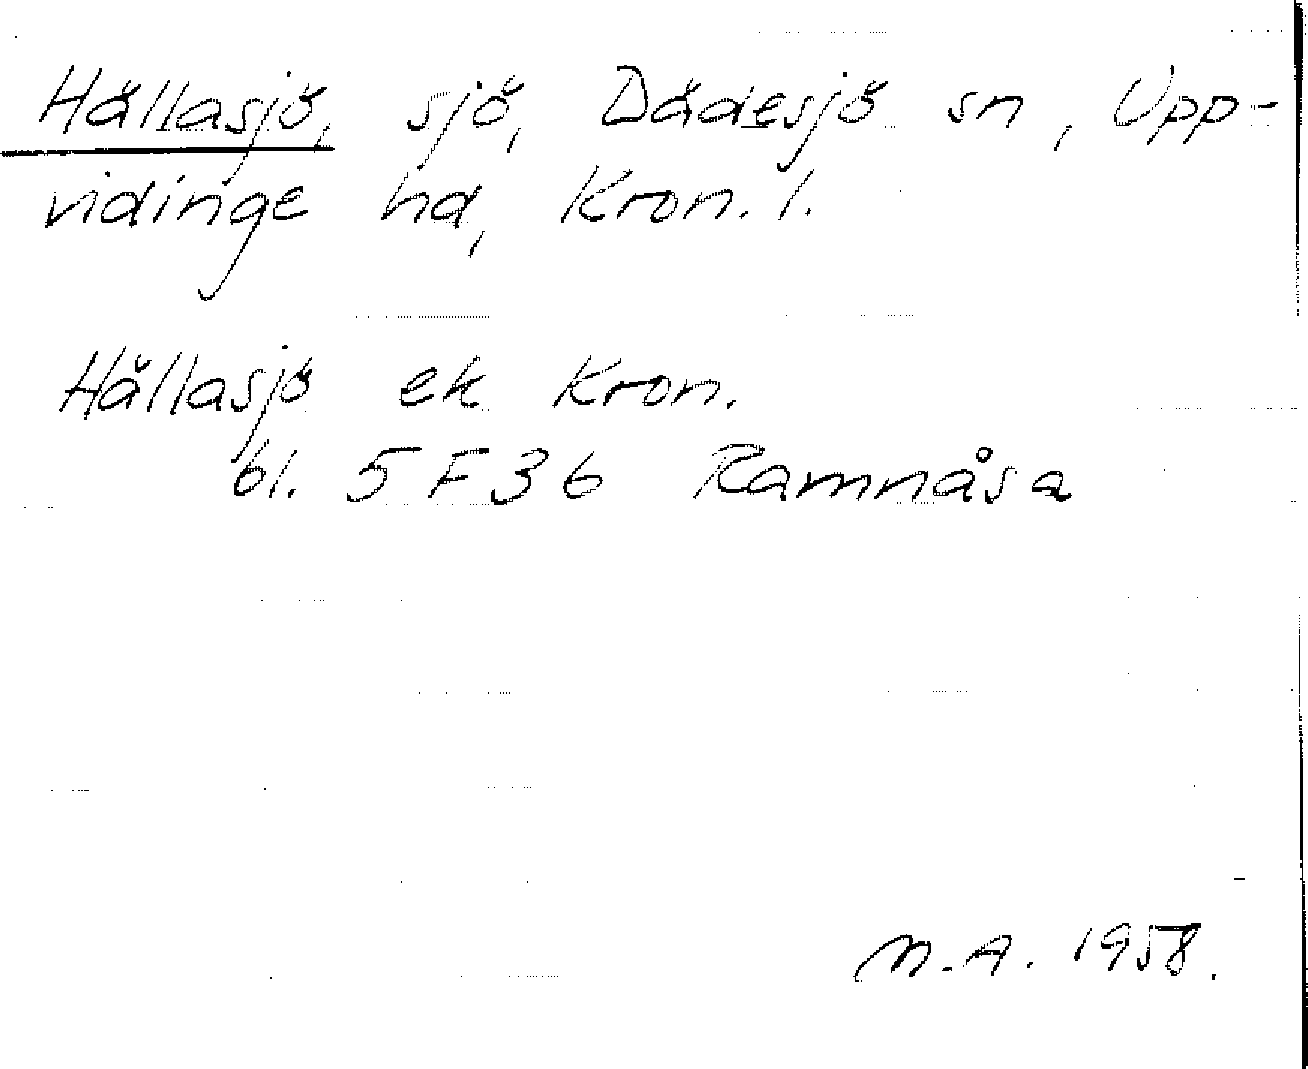 Hällasjö, sjö, Dädesjö sn, Upp-
vidinge hd, Kron. l.
Hällasjö ek Kron.
bl. 5 F 36 Ramnåsa
M.A. 1958.